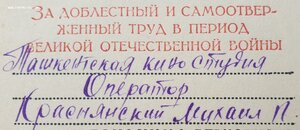 ЗА ДОБЛЕСТНЫЙ И САМООТВЕР-
ЖЕННЫЙ ТРУД В ПЕРИОД
ВЕЛИКОЙ ОТЕЧЕСТВЕННОЙ ВОЙНЫ
Ташкентская киностудия
Оператор
Краснянский Михаил П.